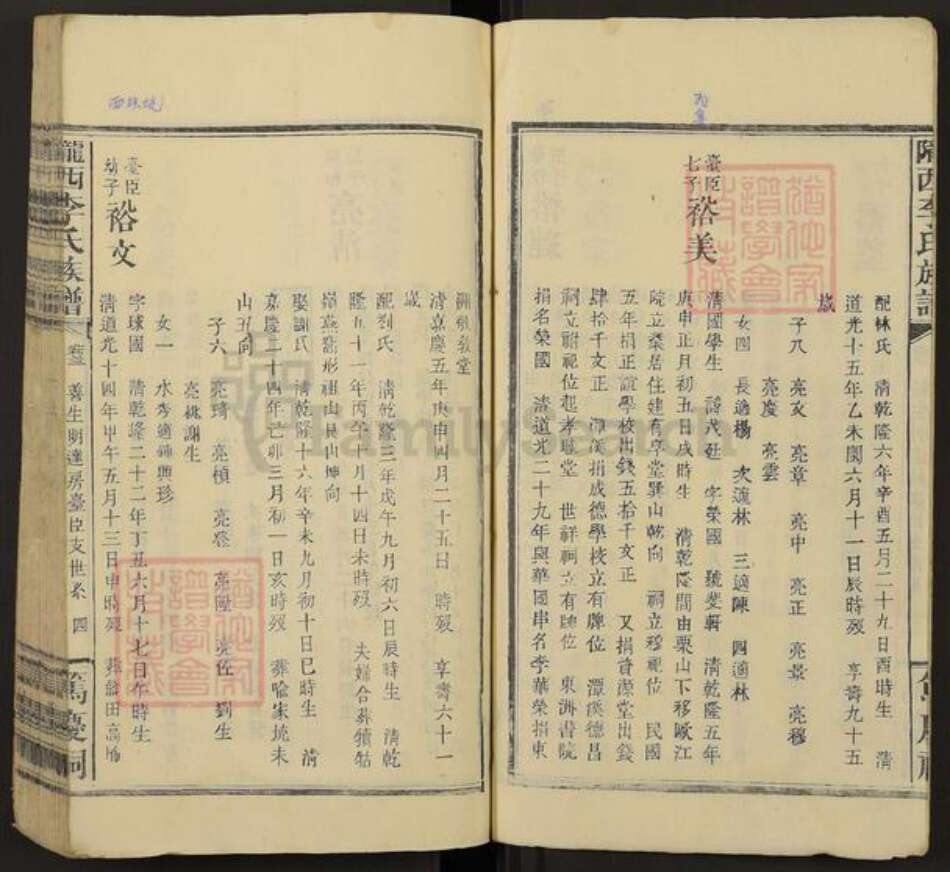 配林氏 清乾隆六年辛酉五月二十九日酉時生 清
道光十五年乙未閏六月十一日辰時歿 享壽九十五
歲
子八 亮亥 亮章 亮中 亮正 亮景 亮穆
亮慶 亮雲
女四 長適楊 次適林 三適陳 四適林
臺臣七子 裕美
清國學生 諱茂 字榮國 號斐軒 清乾隆五年
庚申正月初五日戌時生 清乾隆間由栗山下移歐江
院立業居住建有享堂巽山乾向 祠立穆祀位 民國
五年捐正誼學校出錢五拾千文正 又捐資源堂出錢
肆拾千文正 潭溪捐成德學校立有牌位 潭溪德昌
祠立祔祀位起孝聰堂 世祥祠立有牌位 東洲書院
捐名榮國 清道光二十九年與華國串名李華榮捐東
洲敬教堂
清嘉慶五年庚申四月二十五日 時歿 享壽六十一
歲
配劉氏 清乾隆三年戊午九月初六日辰時生 清乾
隆五十一年丙午十月十四日未時歿 夫婦合葬
燕形祖山艮山坤向
娶謝氏 清乾隆十六年辛未九月初十日巳時生 清
嘉慶二十四年己卯三月初一日亥時歿 葬喻家坑未
山丑向
子六 亮琦 亮楨 亮 亮 亮佐 劉生
亮桃謝生
女一 水秀適鍾興珍
臺臣幼子 裕文
字球國 清乾隆二十二年丁丑六月十七日午時生
清道光十四年甲午五月十三日申時歿
隴西李氏族譜 卷 善生明達房臺臣支世系 四 篤慶祠
隴西李氏族譜